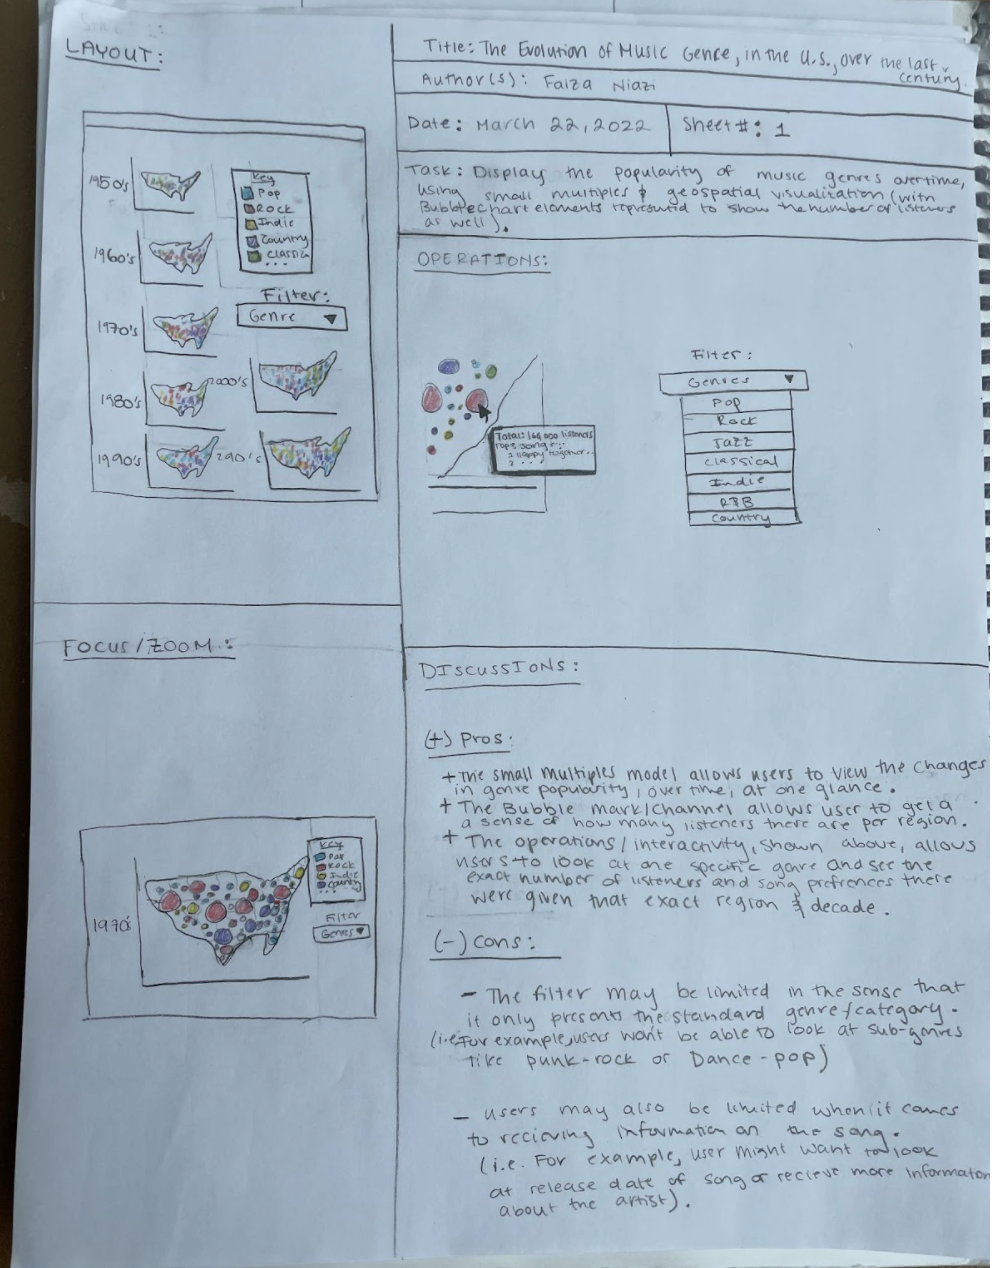 LAYOUT:
1950's
1960's
1970's
1980's
1990's
2000's
Key
Pop
Rock
Indie
Country
Classica
...
Filter:
Genre
Title: The Evolution of Music Genre, in the U.S., over the last
century.
Author(s): Faiza Niazi
Date: March 22, 2022
Sheet #: 1
Task: Display the popularity of music genres overtime,
using small multiples & geospatial visualization (with
Bubblechart elements represented to show the number of listeners
as well).
OPERATIONS:
Total: 160,000 listeners
song
1 Happy together..
2 ...
Filter:
Genres
Pop
Rock
Jazz
Classical
Indie
R&B
Country
FOCUS/ZOOM:
1970's
Key
Pop
Rock
Indie
Country
...
Filter
Genres
DISCUSSIONS:
(+) Pros:
+ The small multiples model allows users to view the changes
in genre popularity, over time, at one glance.
+ The Bubble mark/channel allows user to get a
a sense of how many listeners there are per region.
+ The operations/interactivity, shown above, allows
users to look at one specific genre and see the
exact number of listeners and song prefrences there
were given that exact region & decade.
(-) Cons:
- The filter may be limited in the sense that
it only presents the standard genre/category.
(i.e For example, users won't be able to look at sub-genres
like punk-rock or Dance-pop)
- Users may also be limited when it comes
to recieving information on the song.
(i.e. For example, user might want to look
at release date of song or recieve more information
about the artist).